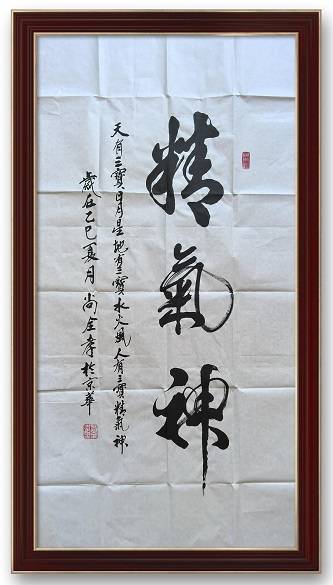 精氣神
天有三寶日月星地有三寶水火風人有三寶精氣神
歲在乙巳夏月尚全孝於京華